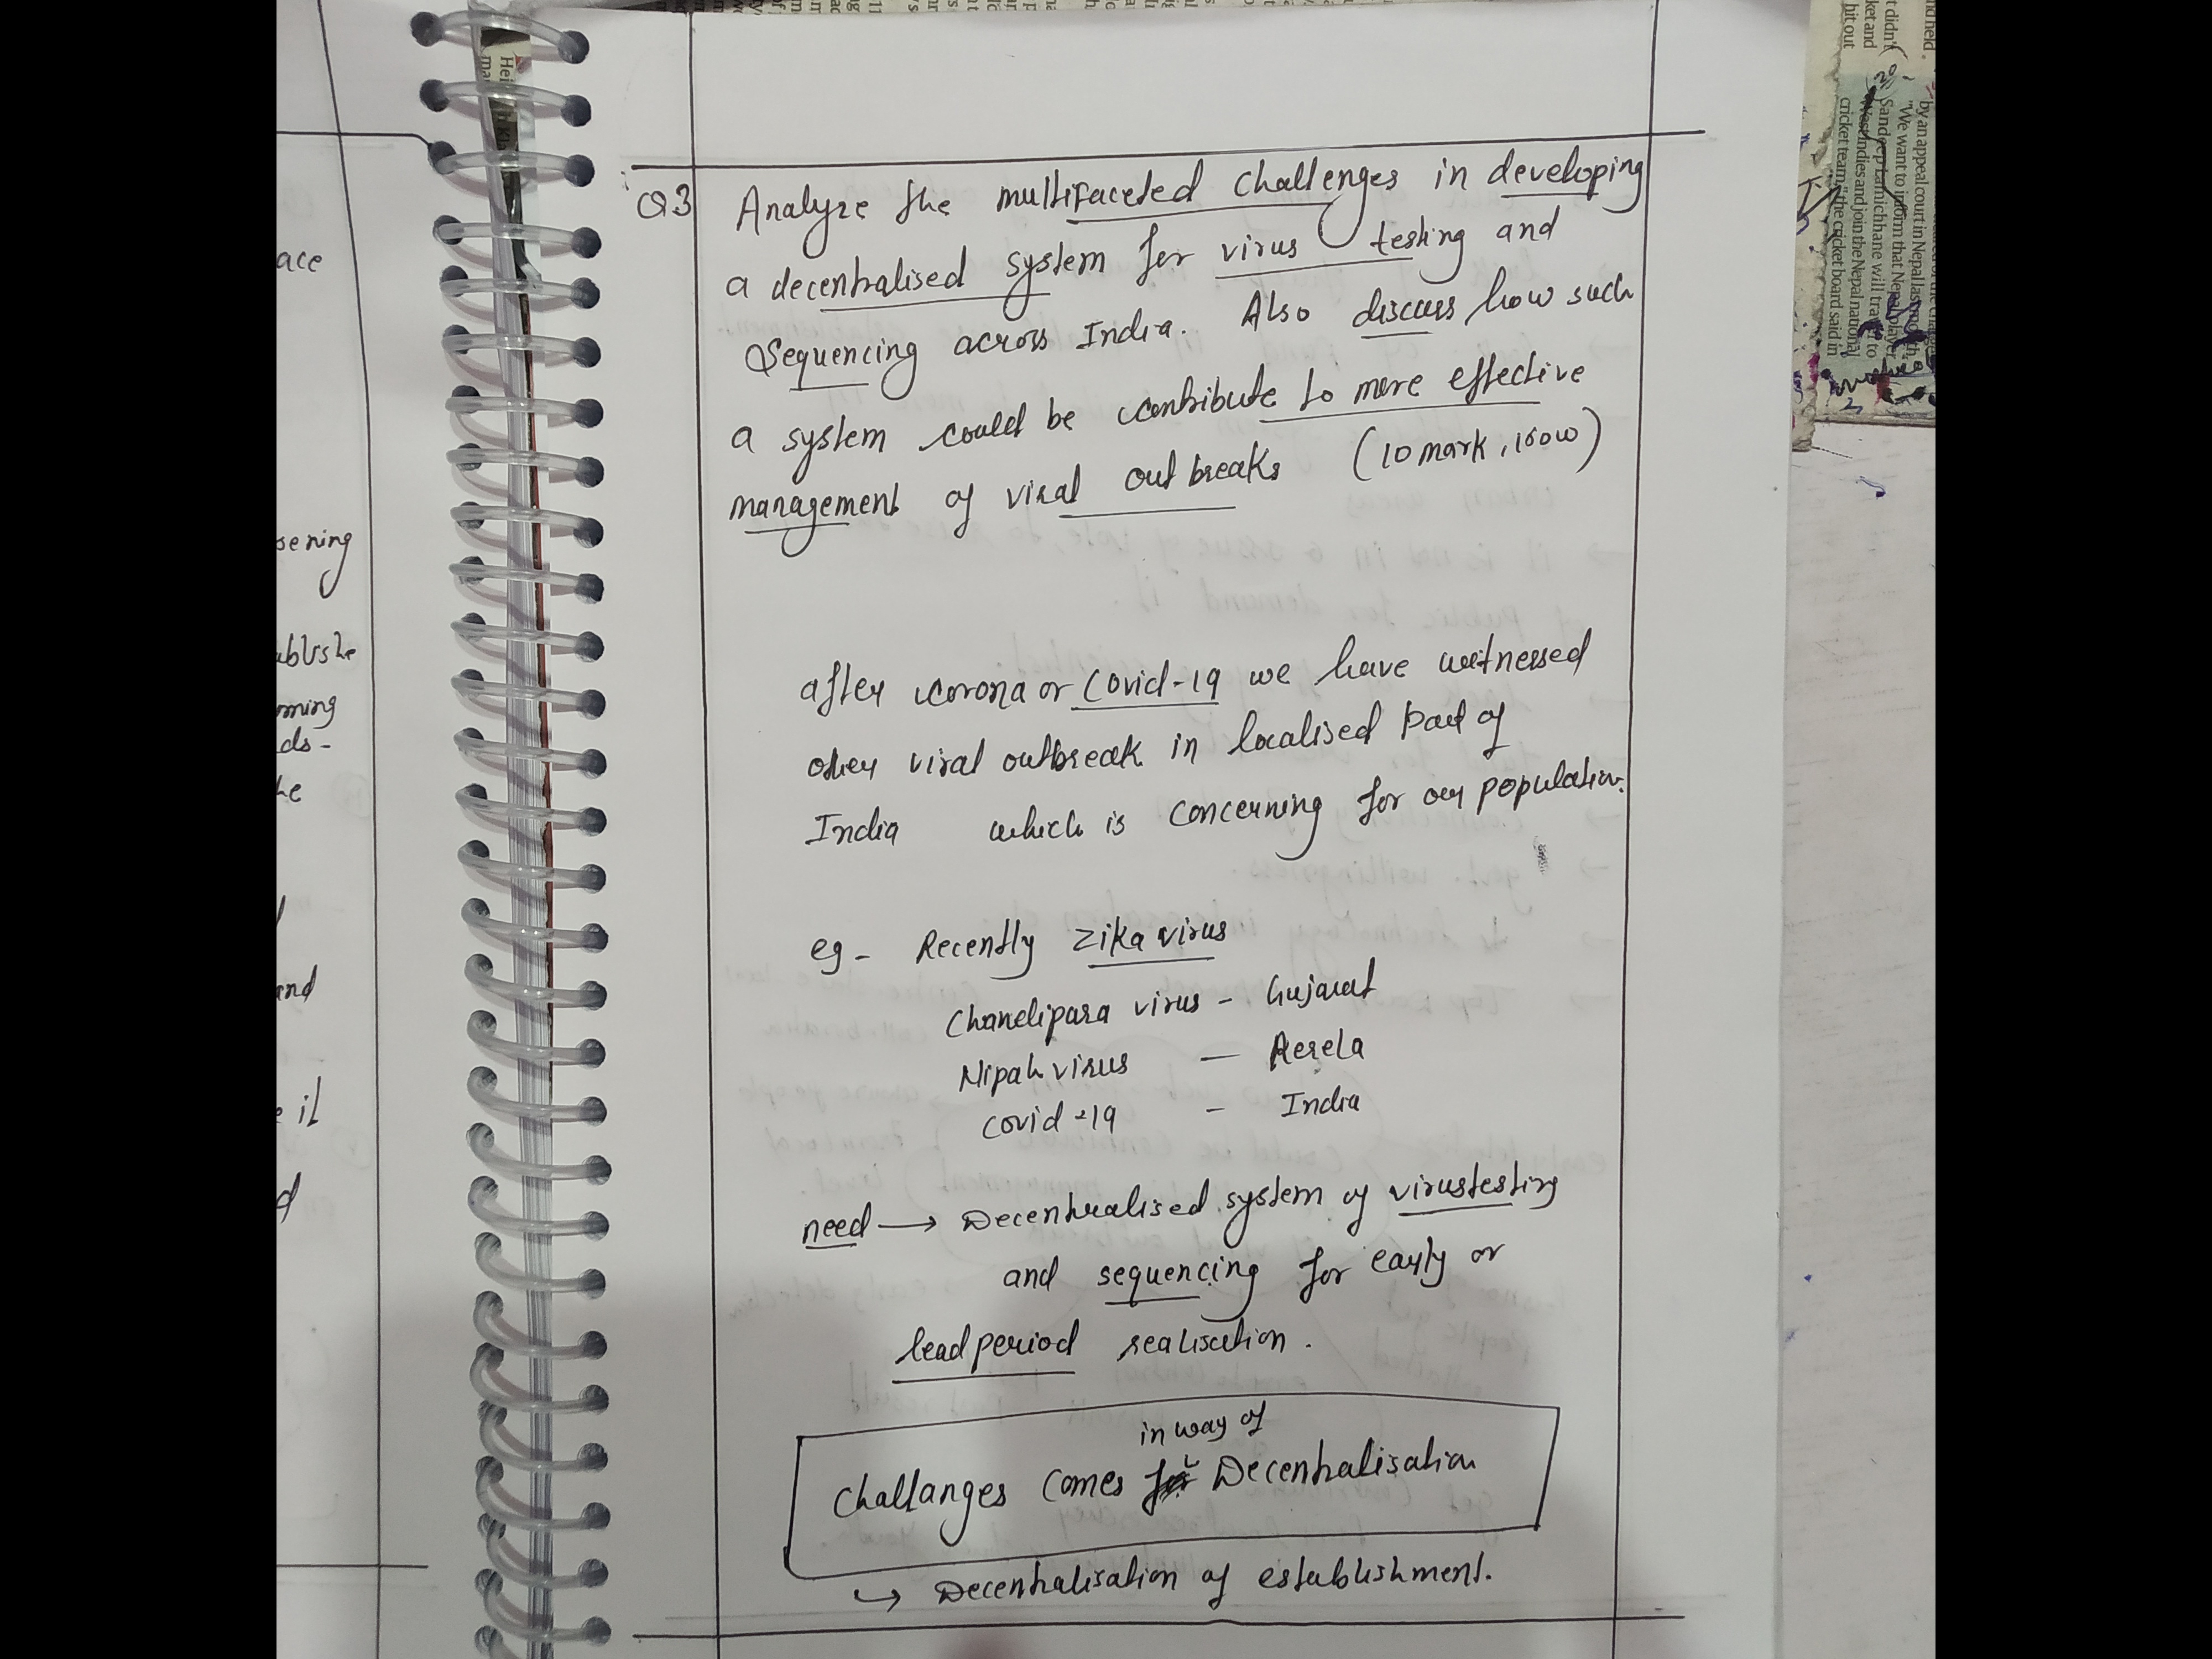 Q3 Analyze the multifaceted challenges in developing
a decentralised system for virus testing and
Sequencing across India. Also discuss how such
a system could be contribute to more effective
management of viral outbreaks (10 mark, 150w)
after corona or Covid-19 we have witnessed
other viral outbreak in localised part of
India which is concerning for our population.
eg - Recently Zika virus
Chandipara virus - Gujarat
Nipah virus — Kerela
covid-19 - India
need → Decentralised system of virus testing
and sequencing for early or
lead period realisation.
in way of
Challanges comes Decentralisation
↳ Decentralisation of establishment.
ace
ening
ablishe
ds-
he
and
e il
d
by an appeal court in Nepal last month
"We want to inform that Nepal player
Sandeep Lamichhane will travel to
West Indies and join the Nepal national
cricket team," the cricket board said in
t didn't
ket and
hit out